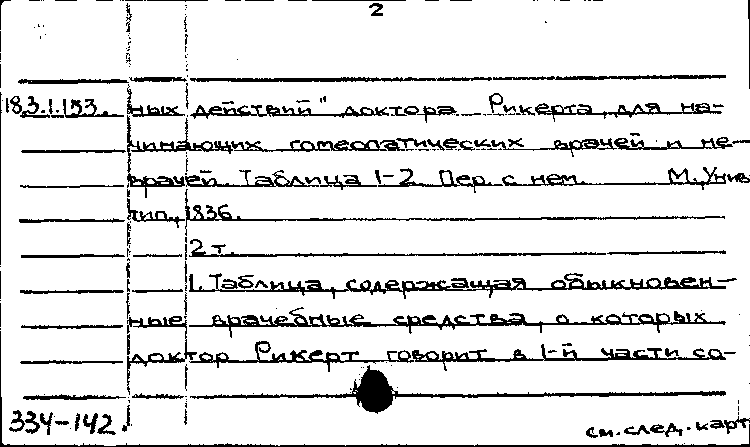 2
18.3.1.153. ных действий" доктора Рикерта, для на-
чинающих гомеопатических врачей и не-
врачей. Таблица 1-2. Пер. с нем. М., Унив.
тип., 1836.
2 т.
1. Таблица, содержащая обыкновен-
ные врачебные средства, о которых
доктор Рикерт говорит в 1-й части со-
334-142.
см. след. карт